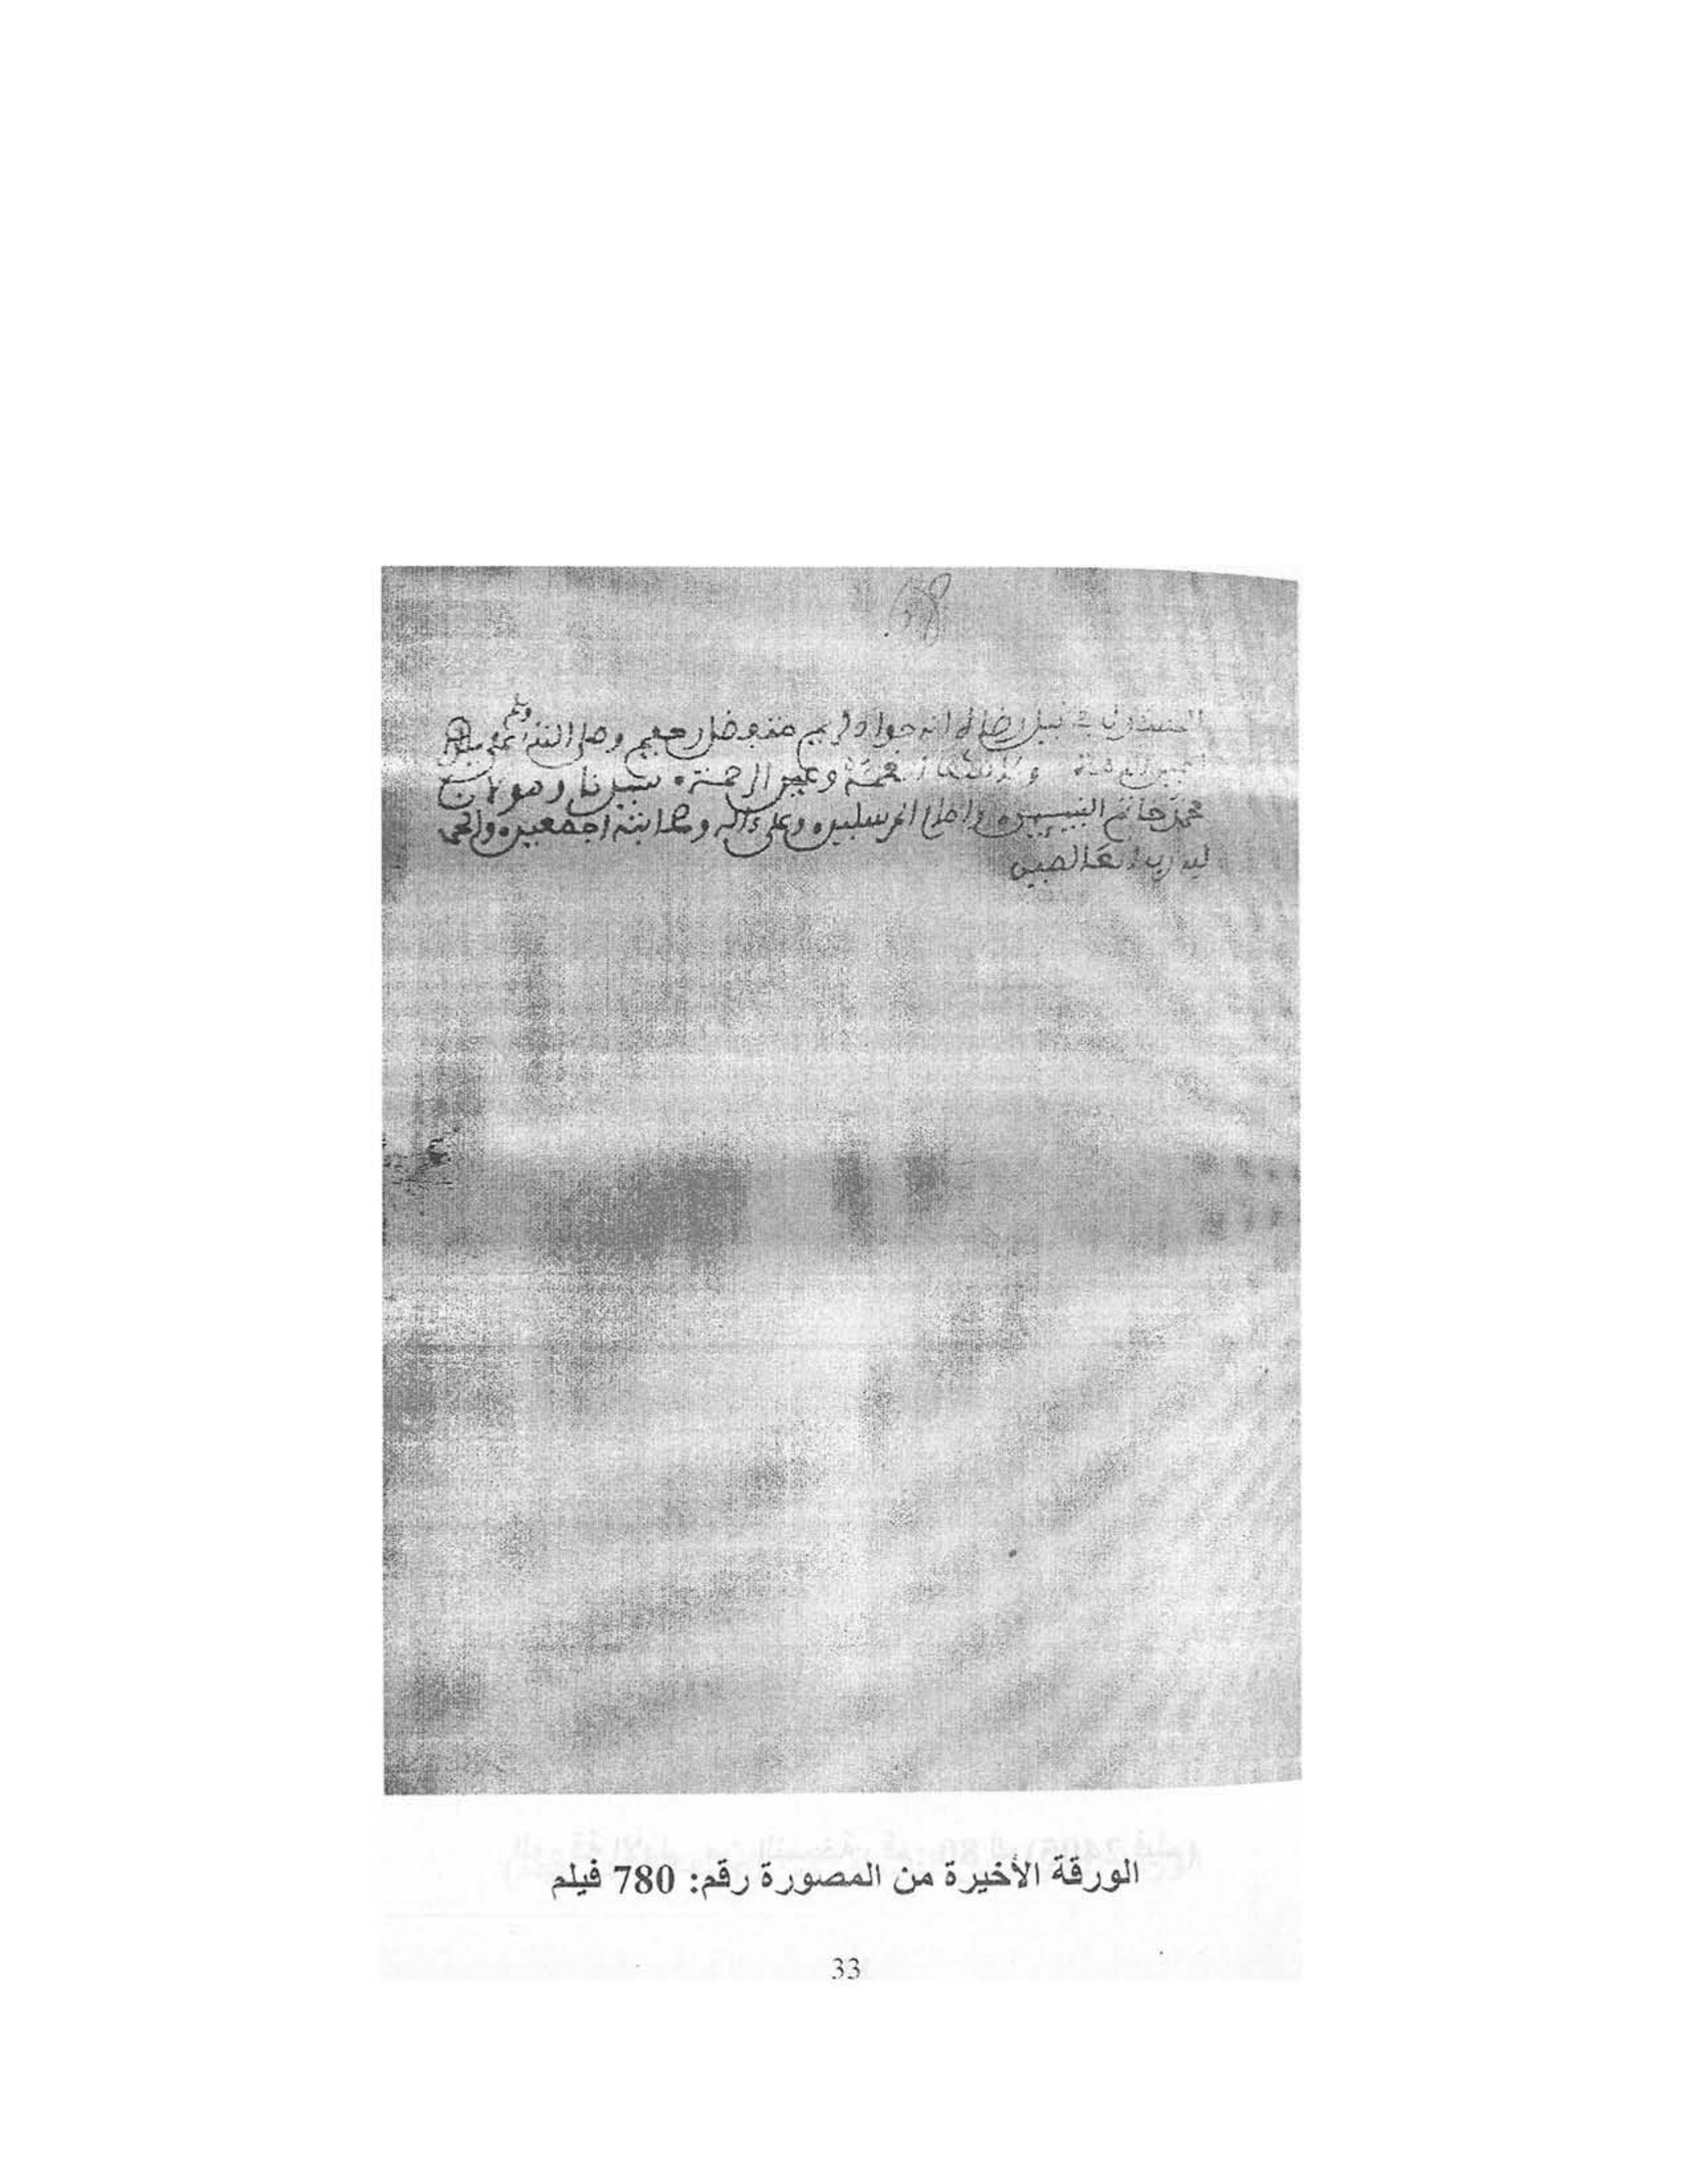 في نيل رضاه انه جواد كريم متفضل رحيم وصلى الله وسلم على
وعين الرحمة سيدنا ومولانا
محمد خاتم النبيين وامام المرسلين وعلى ءاله وصحابته اجمعين والحمد
لله رب العالمين
الورقة الأخيرة من المصورة رقم: 780 فيلم
33